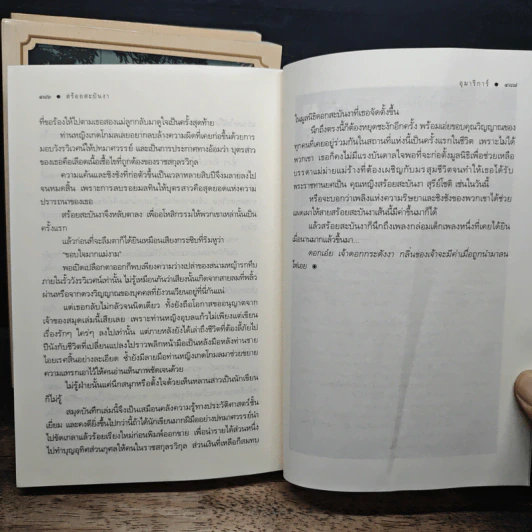 ๔๗๖ ● สร้อยสะบันงา
ที่ขอร้องให้ไปตามเธอสองแม่ลูกกลับมาดูใจเป็นครั้งสุดท้าย
ท่านหญิงเกตโกมลเลยอยากลบล้างความผิดที่เคยก่อขึ้นด้วยการ
มอบวังรวิวศน์ให้ปทมาศวรรย์ และเป็นการประกาศทางอ้อมว่า บุตรสาว
ของเธอคือเลือดเนื้อเชื้อไขที่ถูกต้องของราชสกุลรวิกุล
ความแค้นและชิงชังที่ก่อตัวขึ้นเป็นเวลาหลายสิบปีจึงมลายลงไป
จนหมดสิ้น เพราะการลบรอยมลทินให้บุตรสาวคือสุดยอดแห่งความ
ปรารถนาของเธอ
สร้อยสะบันงาจึงหลับตาลง เพื่ออโหสิกรรมให้พวกเขาเหล่านั้นเป็น
ครั้งแรก
แล้วก่อนที่จะลืมตาก็ได้ยินเหมือนเสียงกระซิบที่ริมหูว่า
"ขอบใจมากแม่งาม"
พอเปิดเปลือกตาออกก็พบเพียงความว่างเปล่าของสนามหญ้ารกทึบ
ภายในรั้ววังรวิวศน์เท่านั้น ไม่รู้เหมือนกันว่าเสียงนั้นเกิดจากสายลมที่พลิ้ว
ผ่านหรือจากดวงวิญญาณของบุคคลที่ยังวนเวียนอยู่ที่นี่กันแน่
แต่เธอกลับไม่กลัวจนนิดเดียว ทั้งยังถือโอกาสขออนุญาตจาก
เจ้าของสมุดเล่มนี้เสียเลย เพราะท่านหญิงอุบลแก้วไม่เพียงแต่เขียน
เรื่องรักๆ ใคร่ๆ ลงไปเท่านั้น แต่ภายหลังยังได้เล่าถึงชีวิตที่ต้องลี้ภัยไป
ปีนังกับชีวิตที่เปลี่ยนแปลงไปราวพลิกหน้ามือเป็นหลังมือหลังท่านชาย
ไอยเรศสิ้นอย่างละเอียด ซ้ำยังมีลายมือท่านหญิงเกตโกมลมาช่วยขยาย
ความแทรกเอาไว้ให้คนอ่านเห็นภาพชัดเจนด้วย
ไม่รู้ฝ่ายนั้นแค่นึกสนุกหรือตั้งใจด้วยเห็นหลานสาวเป็นนักเขียน
ก็ไม่รู้
สมุดบันทึกเล่มนี้จึงเป็นเสมือนคลังความรู้ทางประวัติศาสตร์ชั้น
เยี่ยม และคงดียิ่งขึ้นไปกว่านี้ถ้าได้นักเขียนมากฝีมืออย่างปทมาศวรรย์นำ
ไปขัดเกลาแล้วร้อยเรียงใหม่ก่อนพิมพ์ออกขาย เพื่อนำรายได้ส่วนหนึ่ง
ไปทำบุญอุทิศส่วนกุศลให้คนในราชสกุลรวิกุล ส่วนเงินที่เหลือก็สมทบ
จุฬามณี
ในมูลนิธิดอกสะบันงาที่เธอจัดตั้งขึ้น
นึกถึงตรงนี้ก็ต้องหยุดชะงักอีกครั้ง พร้อมเอ่ยขอบคุณวิญญาณของ
ทุกคนที่เคยอยู่ร่วมกันในสถานที่แห่งนี้เป็นครั้งแรกในชีวิต เพราะหากไม่ได้
พวกเขา เธอก็คงไม่มีแรงบันดาลใจพอที่จะก่อตั้งมูลนิธิเพื่อช่วยเหลือ
บรรดาแม่ม่ายแม่ร้างที่ต้องเผชิญกับมรสุมชีวิตจนทำให้เธอได้รับ
พระราชทานยศเป็น คุณหญิงสร้อยสะบันงา สุริย์โชติ เช่นในวันนี้
หรือจะบอกว่าเพลิงแห่งความริษยาและชิงชังของพวกเขาได้ช่วย
แผดเผาให้สายสร้อยสะบันงาเส้นนี้มีค่าขึ้นมาก็ได้
แล้วสร้อยสะบันงาก็นึกถึงเพลงกล่อมเด็กเพลงหนึ่งที่เคยได้ยิน
เมื่อนานมากแล้วขึ้นมา...
ดอกเอ๋ย เจ้าดอกกระดังงา กลิ่นของเจ้าจะมีค่าเมื่อถูกนำมาลน
ไฟเอย ●